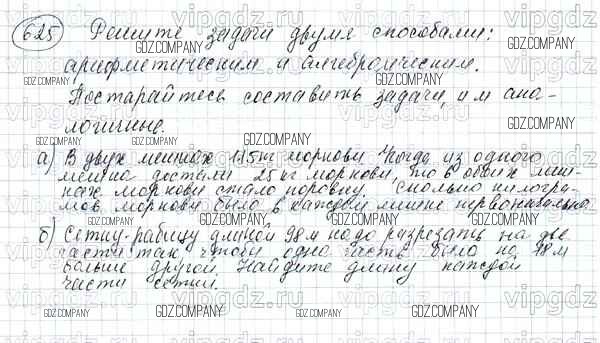 625 Решите задачи двумя способами:
арифметическим и алгебраическим.
Постарайтесь составить задачи, им ана-
логичные.
а) В двух мешках 115 кг моркови. Когда из одного
мешка достали 25 кг моркови, то в обоих меш-
ках моркови стало поровну. Сколько килогра-
мов моркови было в каждом мешке первоначально.
б) Сетку-рабицу длиной 98 м надо разрезать на две
части так, чтобы одна часть была на 18 м
больше другой. Найдите длину каждой
части сетки.